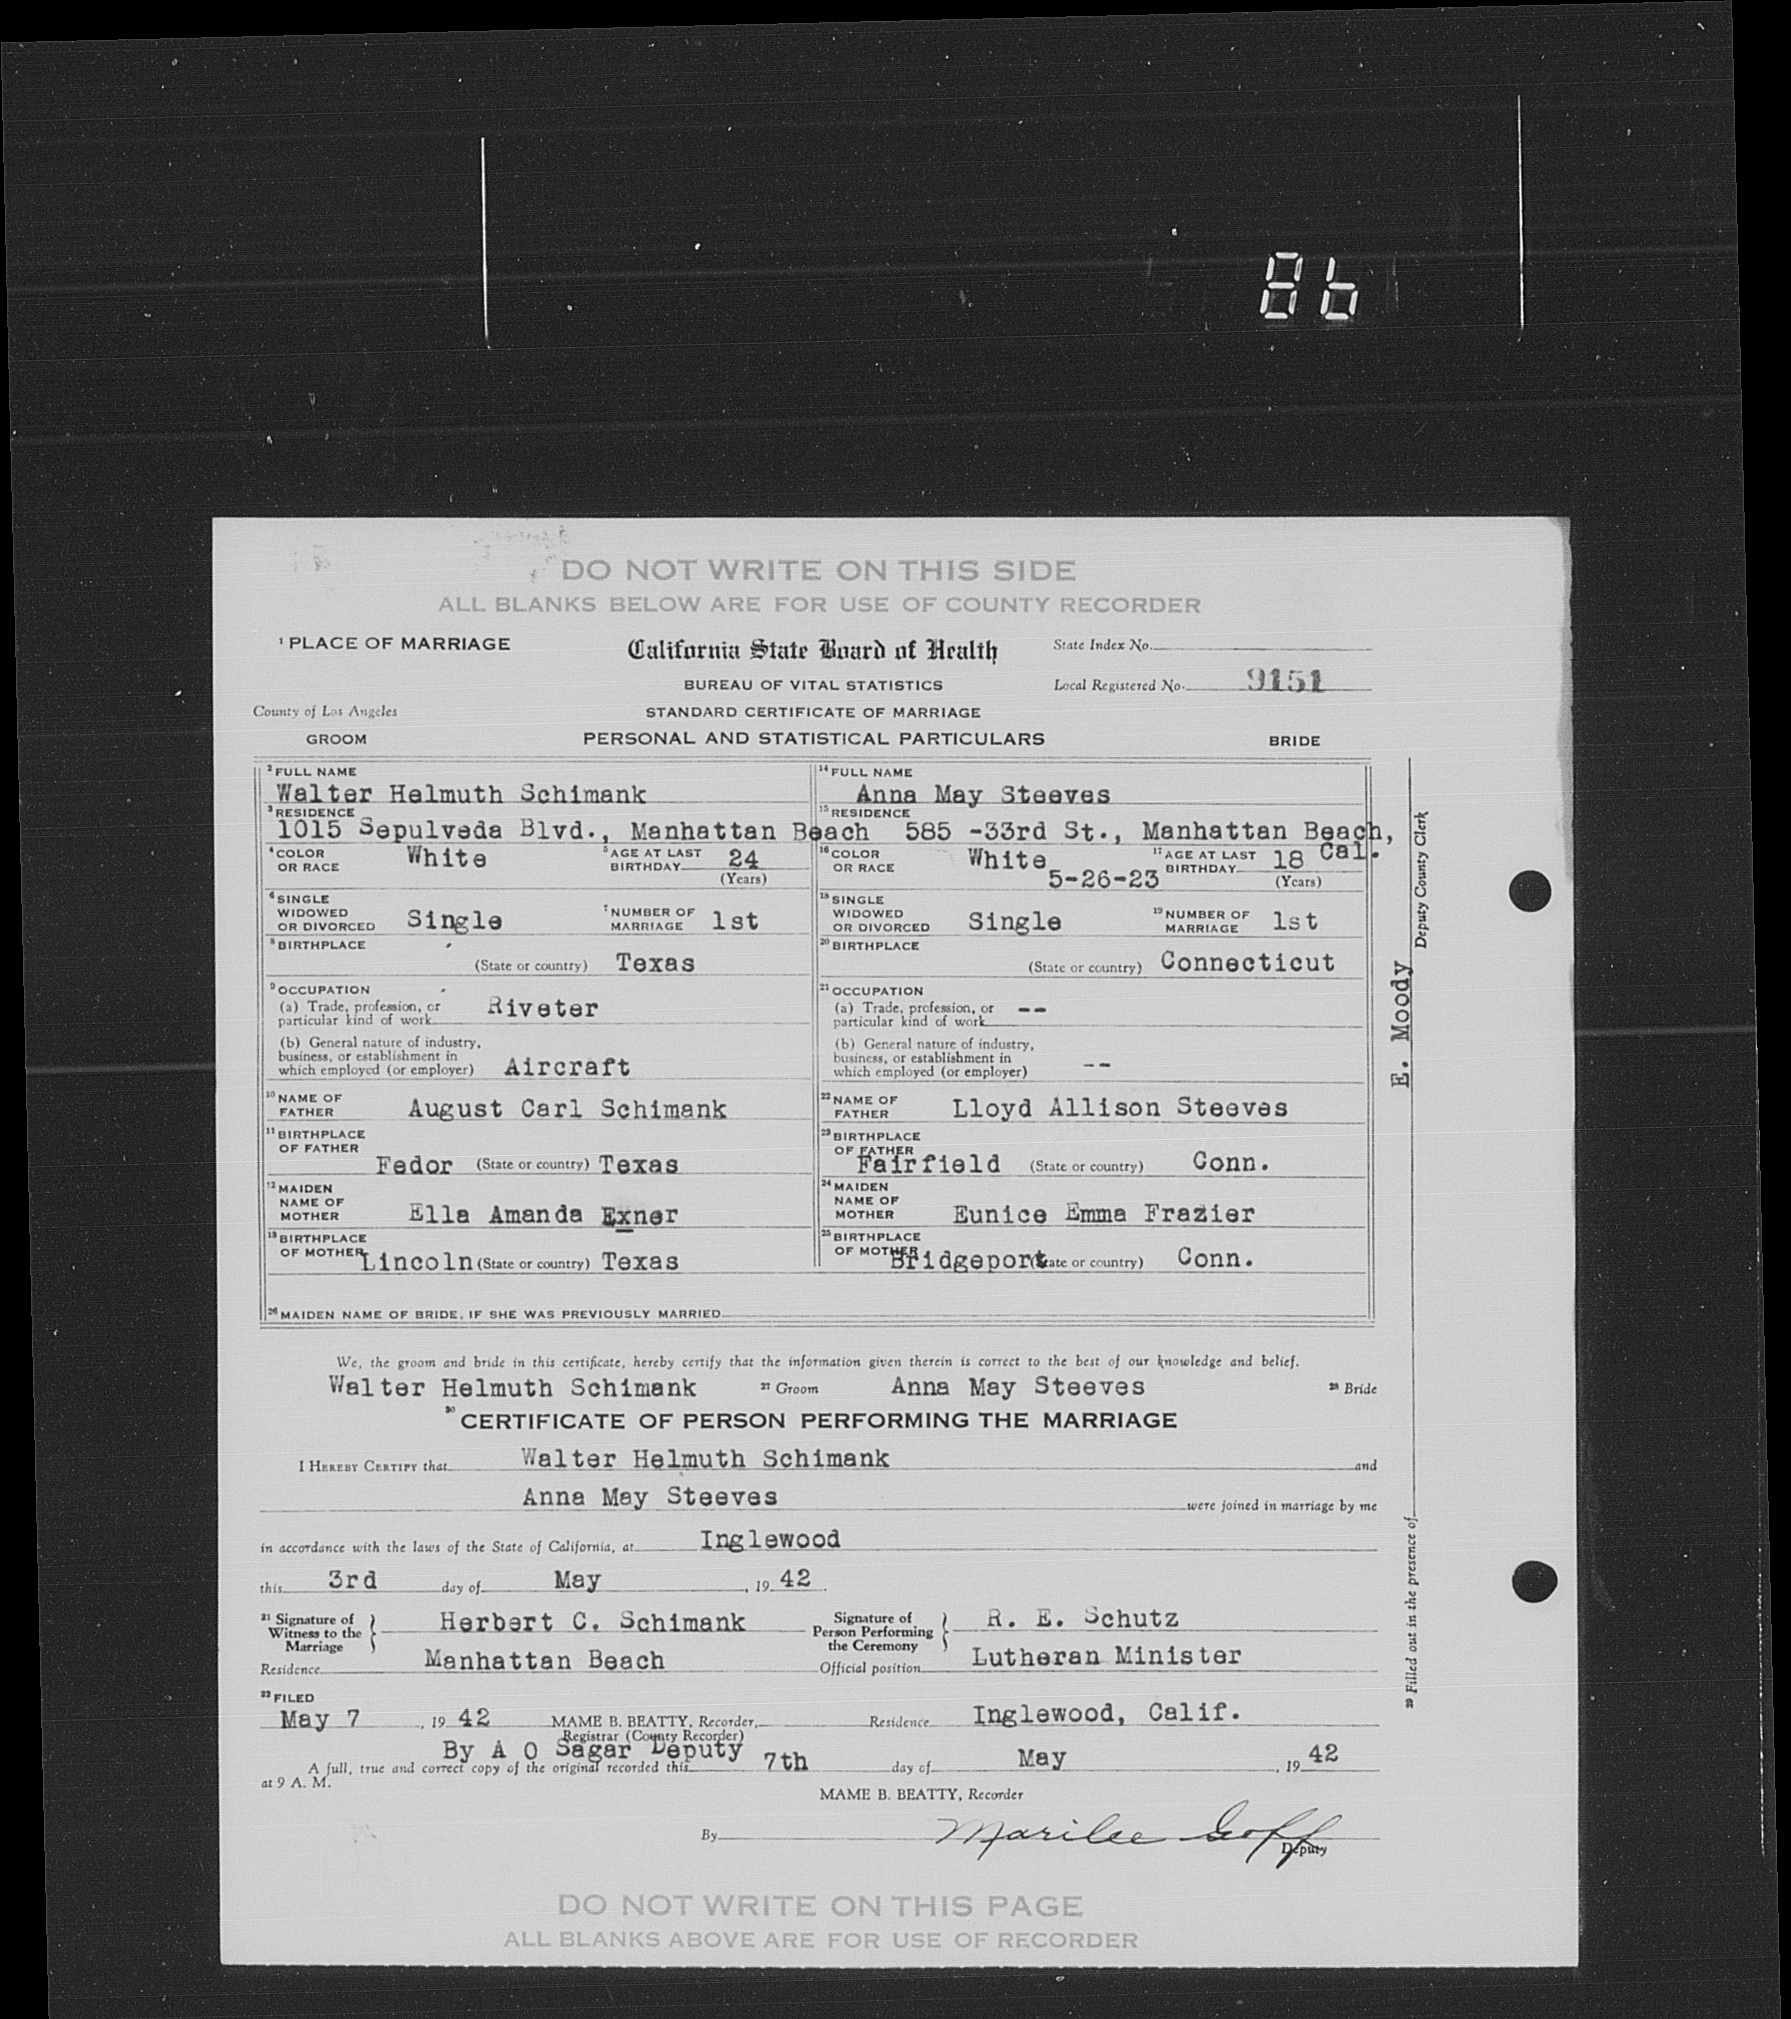 86
DO NOT WRITE ON THIS SIDE
ALL BLANKS BELOW ARE FOR USE OF COUNTY RECORDER
1 PLACE OF MARRIAGE
California State Board of Health
State Index No.
BUREAU OF VITAL STATISTICS
Local Registered No. 9151
County of Los Angeles
STANDARD CERTIFICATE OF MARRIAGE
GROOM PERSONAL AND STATISTICAL PARTICULARS BRIDE
2 FULL NAME Walter Helmuth Schimank
14 FULL NAME Anna May Steeves
3 RESIDENCE 1015 Sepulveda Blvd., Manhattan Beach
15 RESIDENCE 585 -33rd St., Manhattan Beach, Cal.
4 COLOR OR RACE White 5 AGE AT LAST BIRTHDAY 24 (Years)
16 COLOR OR RACE White 5-26-23 17 AGE AT LAST BIRTHDAY 18 (Years)
6 SINGLE WIDOWED OR DIVORCED Single 7 NUMBER OF MARRIAGE 1st
18 SINGLE WIDOWED OR DIVORCED Single 19 NUMBER OF MARRIAGE 1st
8 BIRTHPLACE (State or country) Texas
20 BIRTHPLACE (State or country) Connecticut
9 OCCUPATION
(a) Trade, profession, or particular kind of work Riveter
21 OCCUPATION
(a) Trade, profession, or particular kind of work --
(b) General nature of industry, business, or establishment in which employed (or employer) Aircraft
(b) General nature of industry, business, or establishment in which employed (or employer) --
10 NAME OF FATHER August Carl Schimank
22 NAME OF FATHER Lloyd Allison Steeves
11 BIRTHPLACE OF FATHER Fedor (State or country) Texas
23 BIRTHPLACE OF FATHER Fairfield (State or country) Conn.
12 MAIDEN NAME OF MOTHER Ella Amanda Exner
24 MAIDEN NAME OF MOTHER Eunice Emma Frazier
13 BIRTHPLACE OF MOTHER Lincoln (State or country) Texas
25 BIRTHPLACE OF MOTHER Bridgeport (State or country) Conn.
26 MAIDEN NAME OF BRIDE, IF SHE WAS PREVIOUSLY MARRIED
We, the groom and bride in this certificate, hereby certify that the information given therein is correct to the best of our knowledge and belief.
Walter Helmuth Schimank 27 Groom Anna May Steeves 28 Bride
30 CERTIFICATE OF PERSON PERFORMING THE MARRIAGE
I HEREBY CERTIFY that Walter Helmuth Schimank and
Anna May Steeves were joined in marriage by me
in accordance with the laws of the State of California, at Inglewood
this 3rd day of May, 19 42.
31 Signature of Witness to the Marriage } Herbert C. Schimank
Signature of Person Performing the Ceremony } R. E. Schutz
Residence Manhattan Beach Official position Lutheran Minister
32 FILED
May 7, 19 42 MAME B. BEATTY, Recorder, Residence Inglewood, Calif.
Registrar (County Recorder)
By A O Sagar Deputy
A full, true and correct copy of the original recorded this 7th day of May, 19 42
at 9 A. M.
MAME B. BEATTY, Recorder
By Marilee Goff
Deputy
DO NOT WRITE ON THIS PAGE
ALL BLANKS ABOVE ARE FOR USE OF RECORDER
29 Filled out in the presence of E. Moody Deputy County Clerk